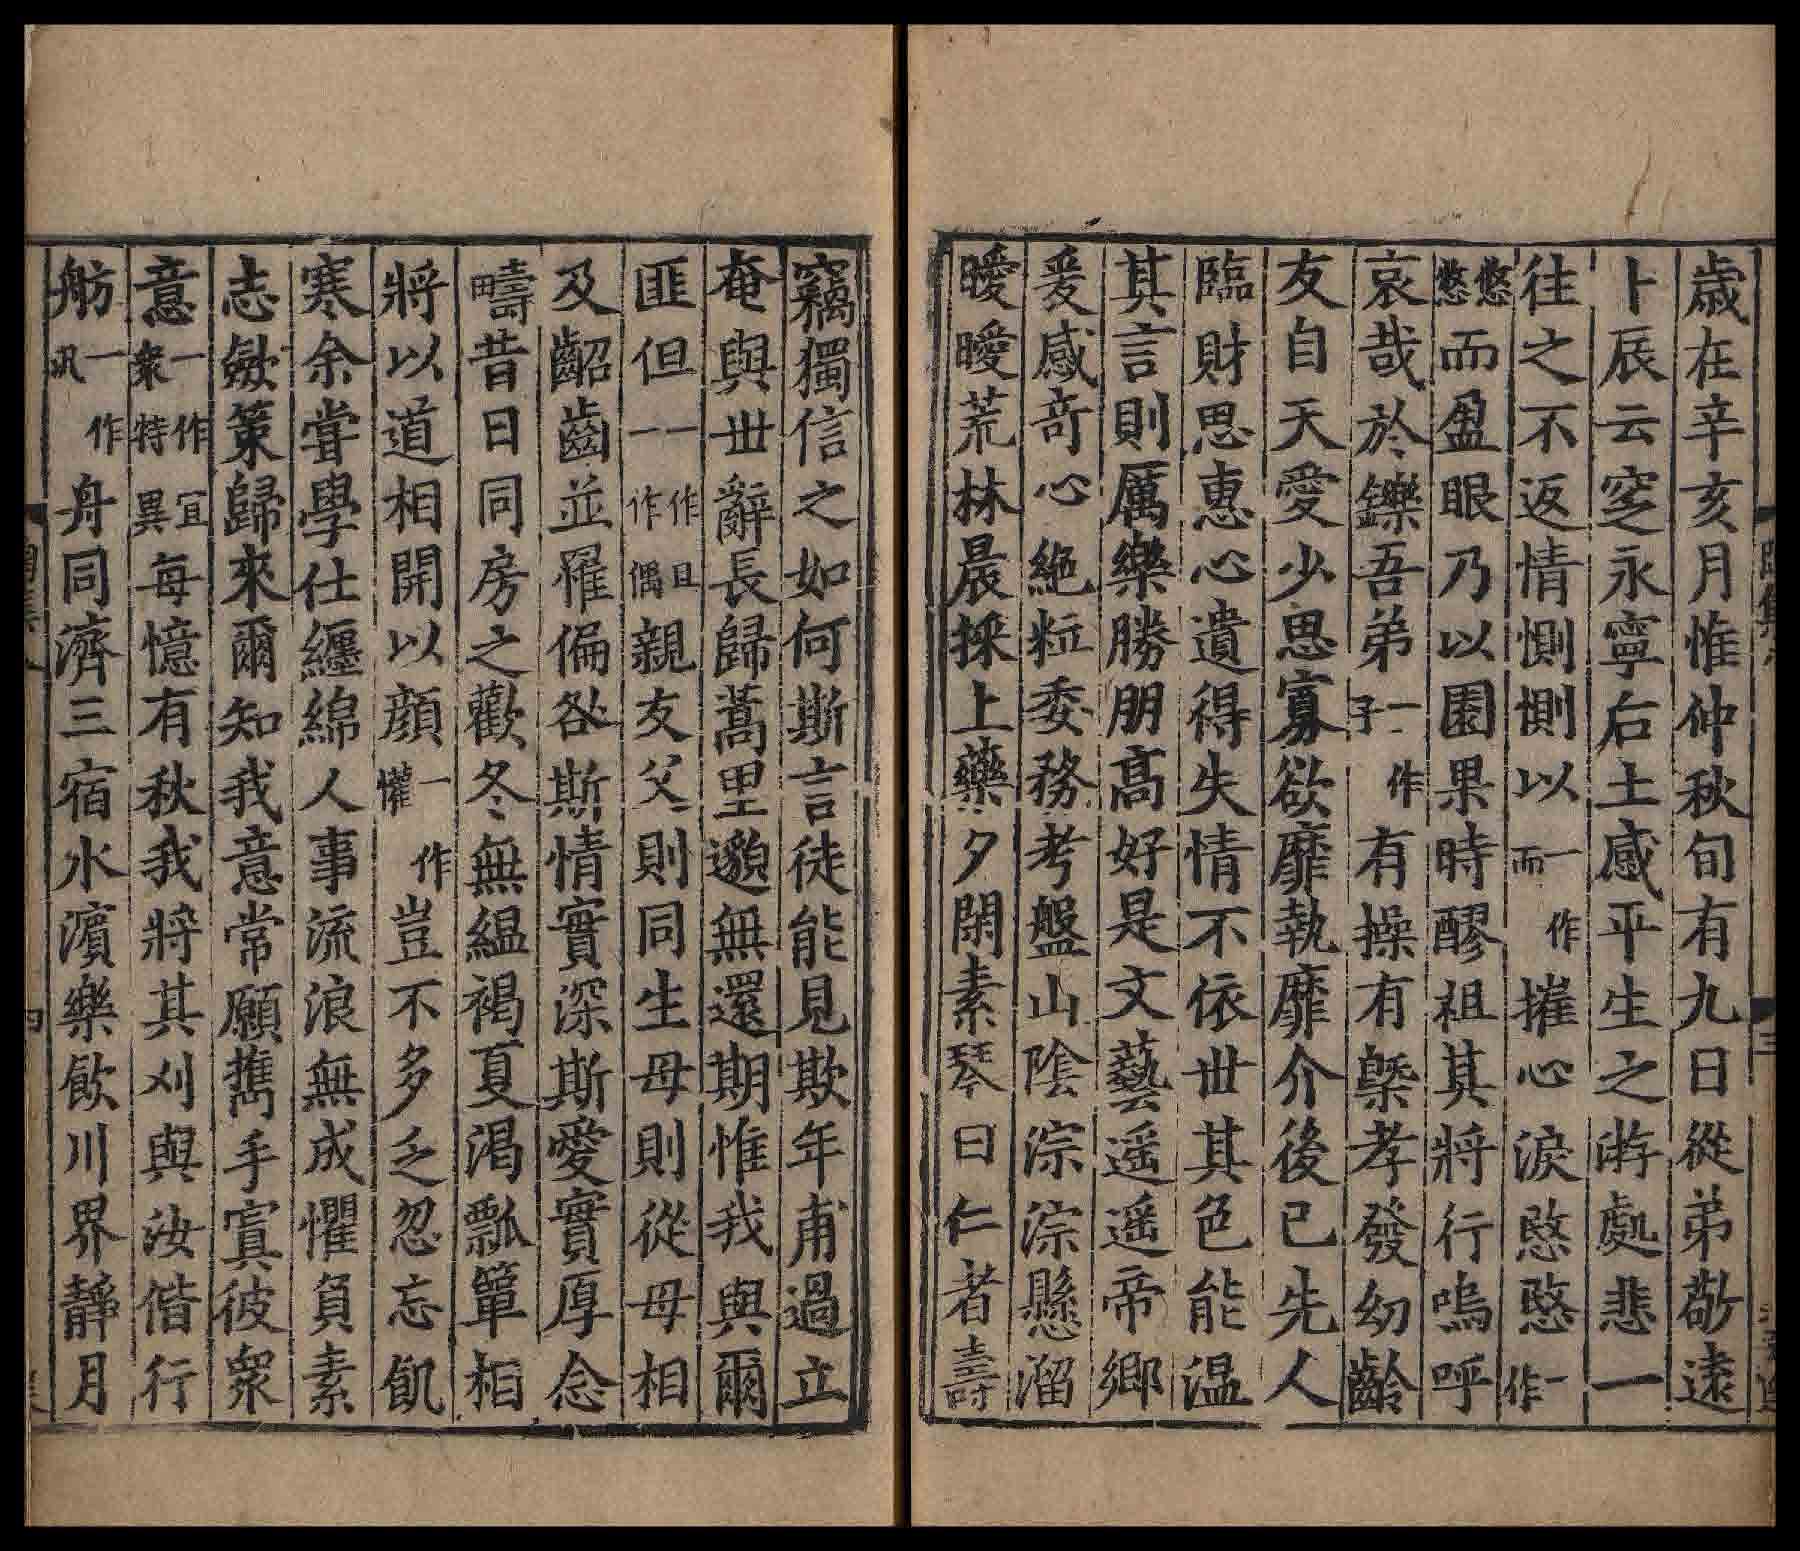 歲在辛亥月惟仲秋旬有九日從弟敬遠
卜辰云窆永寧后土感平生之游處悲一
往之不返情惻惻以一作而摧心淚愍愍一作
慜慜而盈眼乃以園果時醪祖其將行嗚呼
哀哉於鑠吾弟一作子有操有槩孝發幼齡
友自天愛少思寡欲靡執靡介後已先人
臨財思惠心遺得失情不依世其色能温
其言則厲樂勝朋高好是文藝遥遥帝鄉
爰感奇心絶粒委務考盤山陰淙淙懸溜
曖曖荒林晨採上藥夕閑素琴曰仁者壽
竊獨信之如何斯言徒能見欺年甫過立
奄與世辭長歸蒿里邈無還期惟我與爾
匪但一作且一作偶親友父則同生母則從母相
及齠齒並罹偏咎斯情實深斯愛實厚念
疇昔日同房之歡冬無緼褐夏渴瓢簞相
將以道相開以顔一作懽豈不多乏忽忘飢
寒余嘗學仕纏綿人事流浪無成懼負素
志斂策歸來爾知我意常願攜手寘彼衆
意一作宜衆特異每憶有秋我將其刈與汝偕行
舫一作汎舟同濟三宿水濵樂飲川界靜月